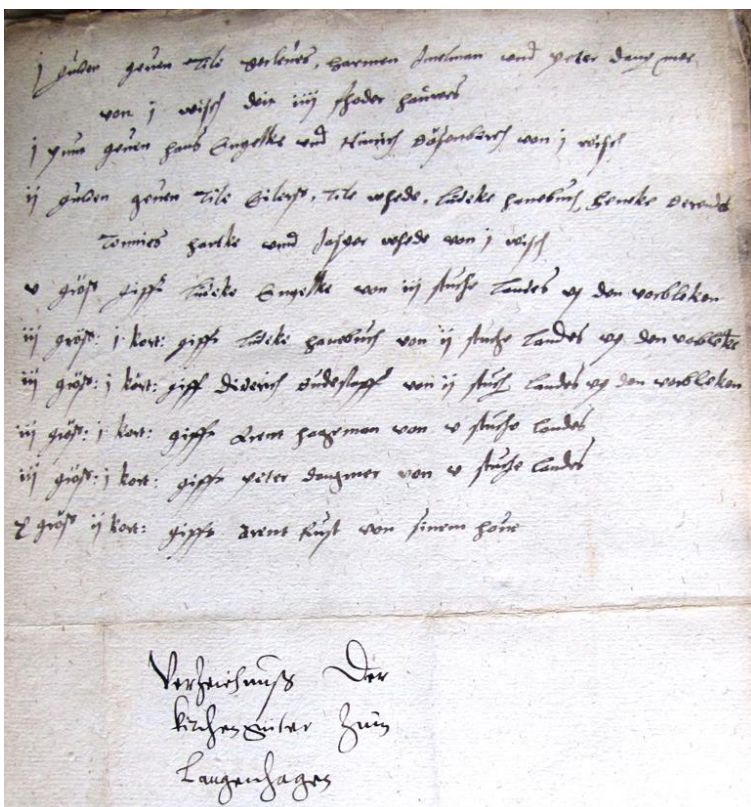 j gulden geuen Tile Harmen Amelman vnd peter dangmer
von j wisch dar iiij foder hauwes
j punt geuen hans Engelke vnd Hinrich von j wisch
ij gulden geuen Tile Eilers, Tile whede, Ludeke hanebuth, Heneke Berends
Tonnies hartke vnnd Jasper whede von j wisch
v gröss gifft Ludeke Engelke von iij stucke Landes vp den vorbleken
iij gröss: j kort: gifft Ludeke hanebuth von ij stucke Landes vp den vorbleken
iij gröss: j kort: gifft Diderich Budestapp von ij stuck Landes vp den vorbleken
iij gröss: j kort: gifft Arent hageman von v stucke Landes
iij gröss: j kort: gifft peter dangmer von v stucke Landes
x gröss ij kort: gifft Arent Rust von sinem houe
Verzeichnuss Der
kirchen guter Zum
Langenhagen